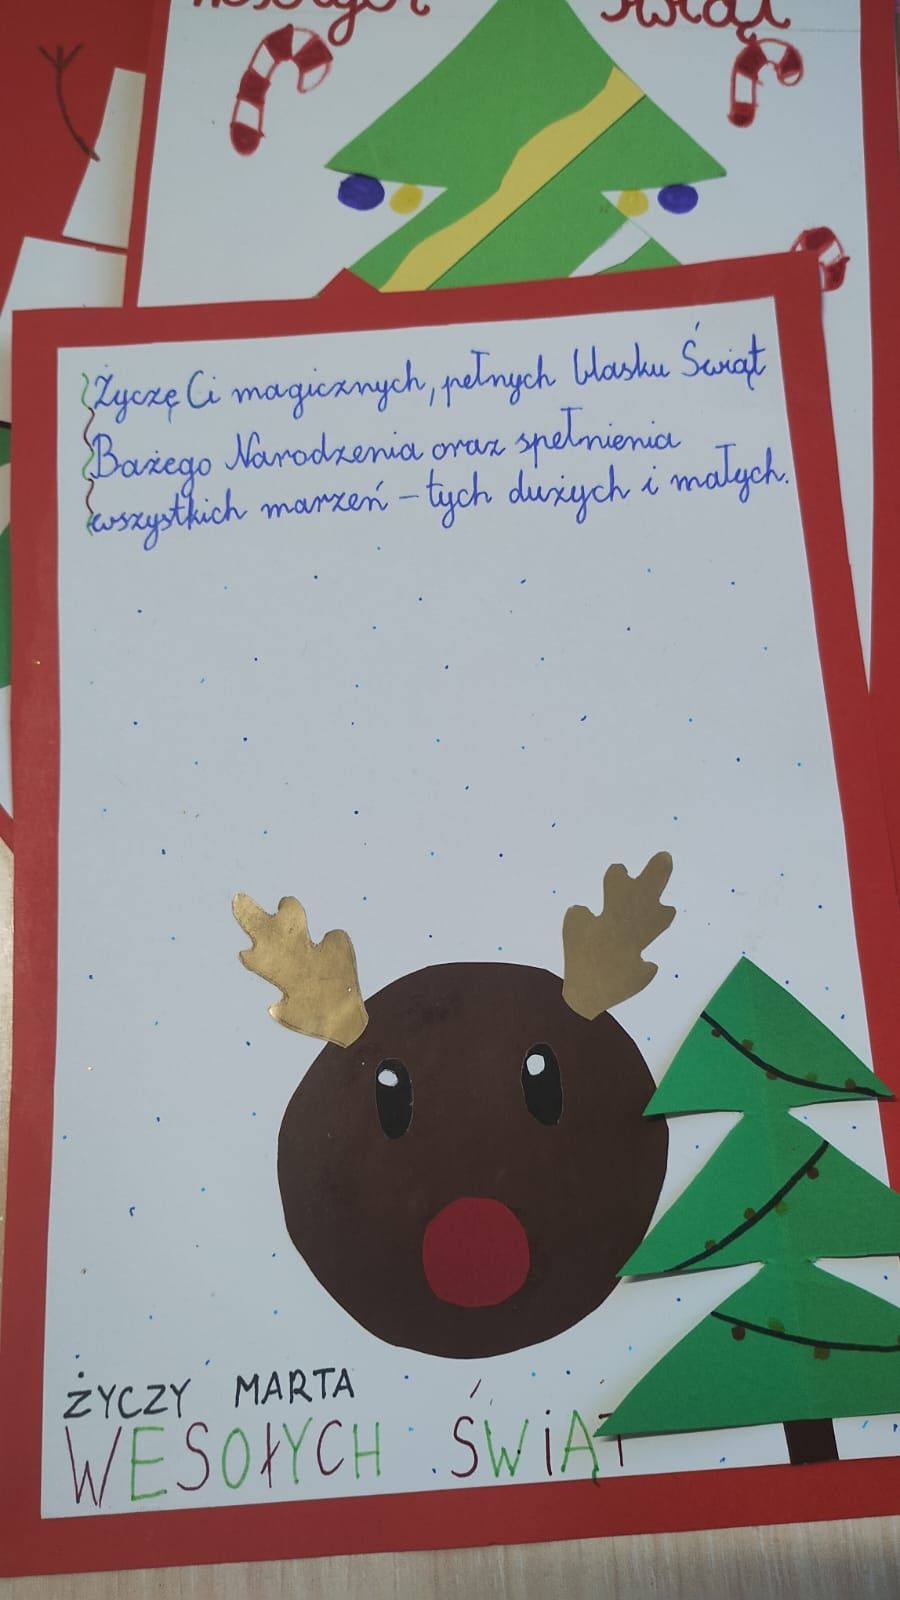 Wesołych Świąt
Życzę Ci magicznych, pełnych blasku Świąt
Bażego Narodzenia oraz spełnienia
wszystkich marzeń – tych dużych i małych.
ŻYCZY MARTA
WESOŁYCH ŚWIĄT